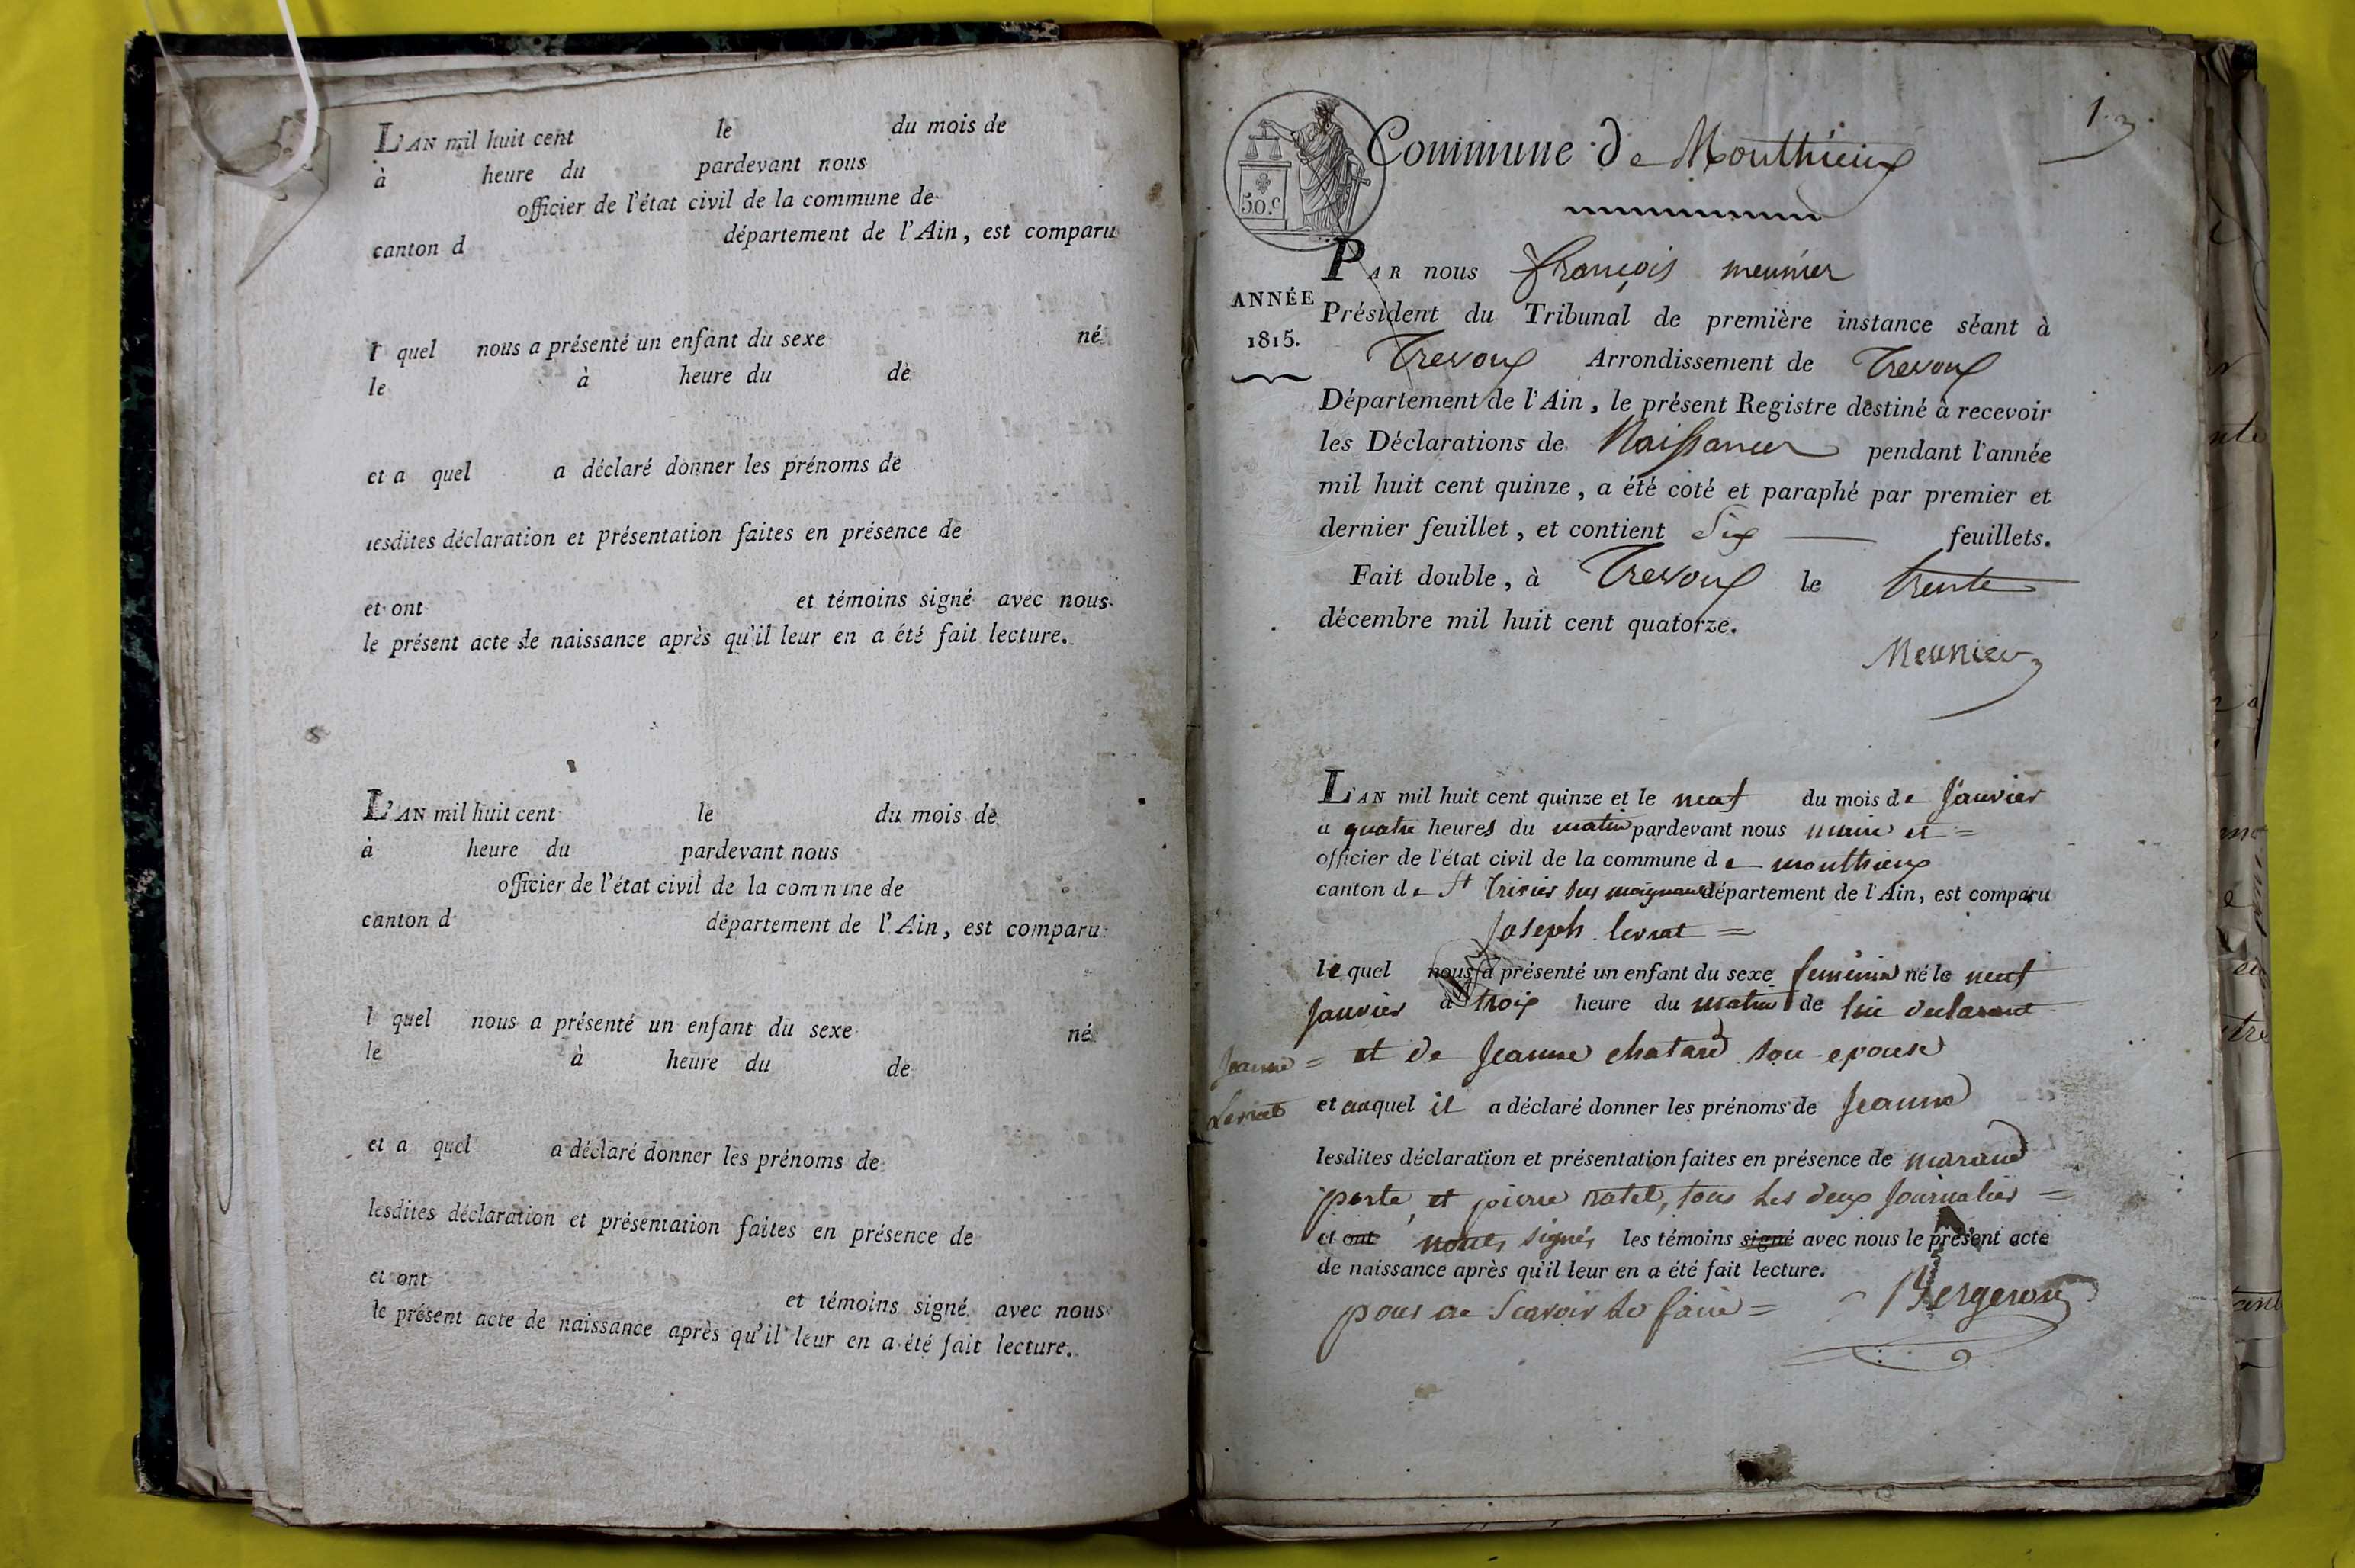 L'AN mil huit cent le du mois de
à heure du pardevant nous
officier de l'état civil de la commune de
canton d département de l'Ain, est comparu
l quel nous a présenté un enfant du sexe né
le à heure du de
et a quel a déclaré donner les prénoms de
lesdites déclaration et présentation faites en présence de
et ont et témoins signé avec nous
le présent acte de naissance après qu'il leur en a été fait lecture.
L'AN mil huit cent le du mois de
à heure du pardevant nous
officier de l'état civil de la commune de
canton d département de l'Ain, est comparu
l quel nous a présenté un enfant du sexe né
le à heure du de
et a quel a déclaré donner les prénoms de
lesdites déclaration et présentation faites en présence de
et ont et témoins signé avec nous
le présent acte de naissance après qu'il leur en a été fait lecture.
1.
50.c
Commune de Monthieux
PAR nous françois meunier
ANNÉE
1815.
Président du Tribunal de première instance séant à
Trevoux Arrondissement de Trevoux
Département de l'Ain, le présent Registre destiné à recevoir
les Déclarations de Naissances pendant l'année
mil huit cent quinze, a été coté et paraphé par premier et
dernier feuillet, et contient Six feuillets.
Fait double, à Trevoux le trente
décembre mil huit cent quatorze.
Meunier
L'AN mil huit cent quinze et le neuf du mois de Janvier
a quatre heures du matin pardevant nous maire et =
officier de l'état civil de la commune de monthieux
canton de St trivier sur moignans département de l'Ain, est comparu
Joseph levrat =
lequel nous a présenté un enfant du sexe feminin né le neuf
Janvier à trois heure du matin de lui declarant
et de Jeanne chatard son epouse
Jeanne =
Levrat
et auquel il a déclaré donner les prénoms de Jeanne
lesdites déclaration et présentation faites en présence de
et pierre ratel, tous les deux Journalier =
et ont signés les témoins signé avec nous le présent acte
de naissance après qu'il leur en a été fait lecture.
pour ne Scavoir le faire = Bergeron